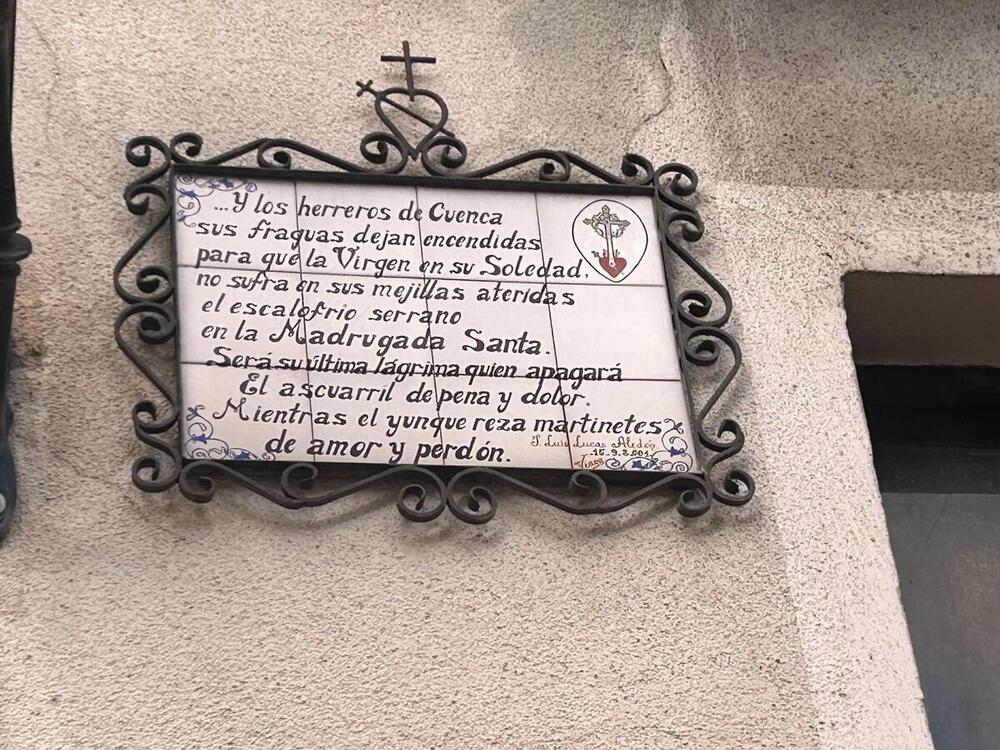 ...Y los herreros de Cuenca
sus fraguas dejan encendidas
para que la Virgen en su Soledad,
no sufra en sus mejillas ateridas
el escalofrio serrano
en la Madrugada Santa.
Será su última lágrima quien apagará
El ascuarril de pena y dolor.
Mientras el yunque reza martinetes
de amor y perdón.
J. Luis Lucas Aledón
15-9-2001